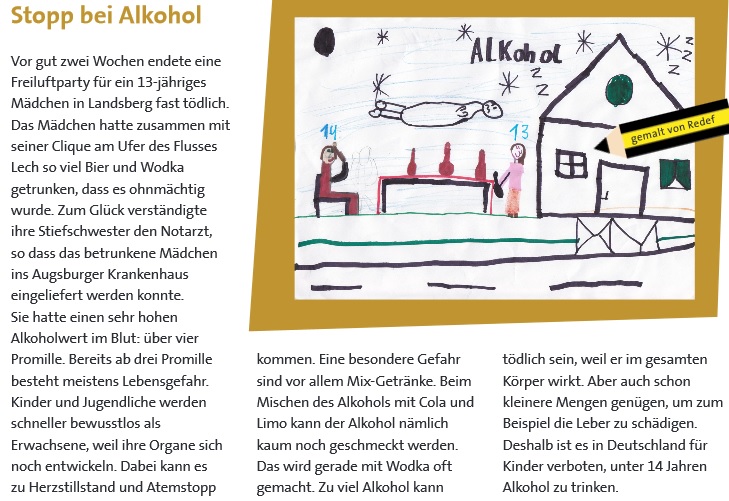 Stopp bei Alkohol
Vor gut zwei Wochen endete eine
Freiluftparty für ein 13-jähriges
Mädchen in Landsberg fast tödlich.
Das Mädchen hatte zusammen mit
seiner Clique am Ufer des Flusses
Lech so viel Bier und Wodka
getrunken, dass es ohnmächtig
wurde. Zum Glück verständigte
ihre Stiefschwester den Notarzt,
so dass das betrunkene Mädchen
ins Augsburger Krankenhaus
eingeliefert werden konnte.
Sie hatte einen sehr hohen
Alkoholwert im Blut: über vier
Promille. Bereits ab drei Promille
besteht meistens Lebensgefahr.
Kinder und Jugendliche werden
schneller bewusstlos als
Erwachsene, weil ihre Organe sich
noch entwickeln. Dabei kann es
zu Herzstillstand und Atemstopp
kommen. Eine besondere Gefahr
sind vor allem Mix-Getränke. Beim
Mischen des Alkohols mit Cola und
Limo kann der Alkohol nämlich
kaum noch geschmeckt werden.
Das wird gerade mit Wodka oft
gemacht. Zu viel Alkohol kann
tödlich sein, weil er im gesamten
Körper wirkt. Aber auch schon
kleinere Mengen genügen, um zum
Beispiel die Leber zu schädigen.
Deshalb ist es in Deutschland für
Kinder verboten, unter 14 Jahren
Alkohol zu trinken.
ALKohol
z
z
z
z
z
z
14
13
gemalt von Redef